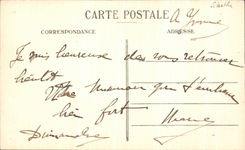 CARTE POSTALE
A Yvonne
CORRESPONDANCE
ADRESSE
Je suis heureuse de vous retrouver
bientôt
Votre maman qui t'embrasse
bien fort
Dimanche